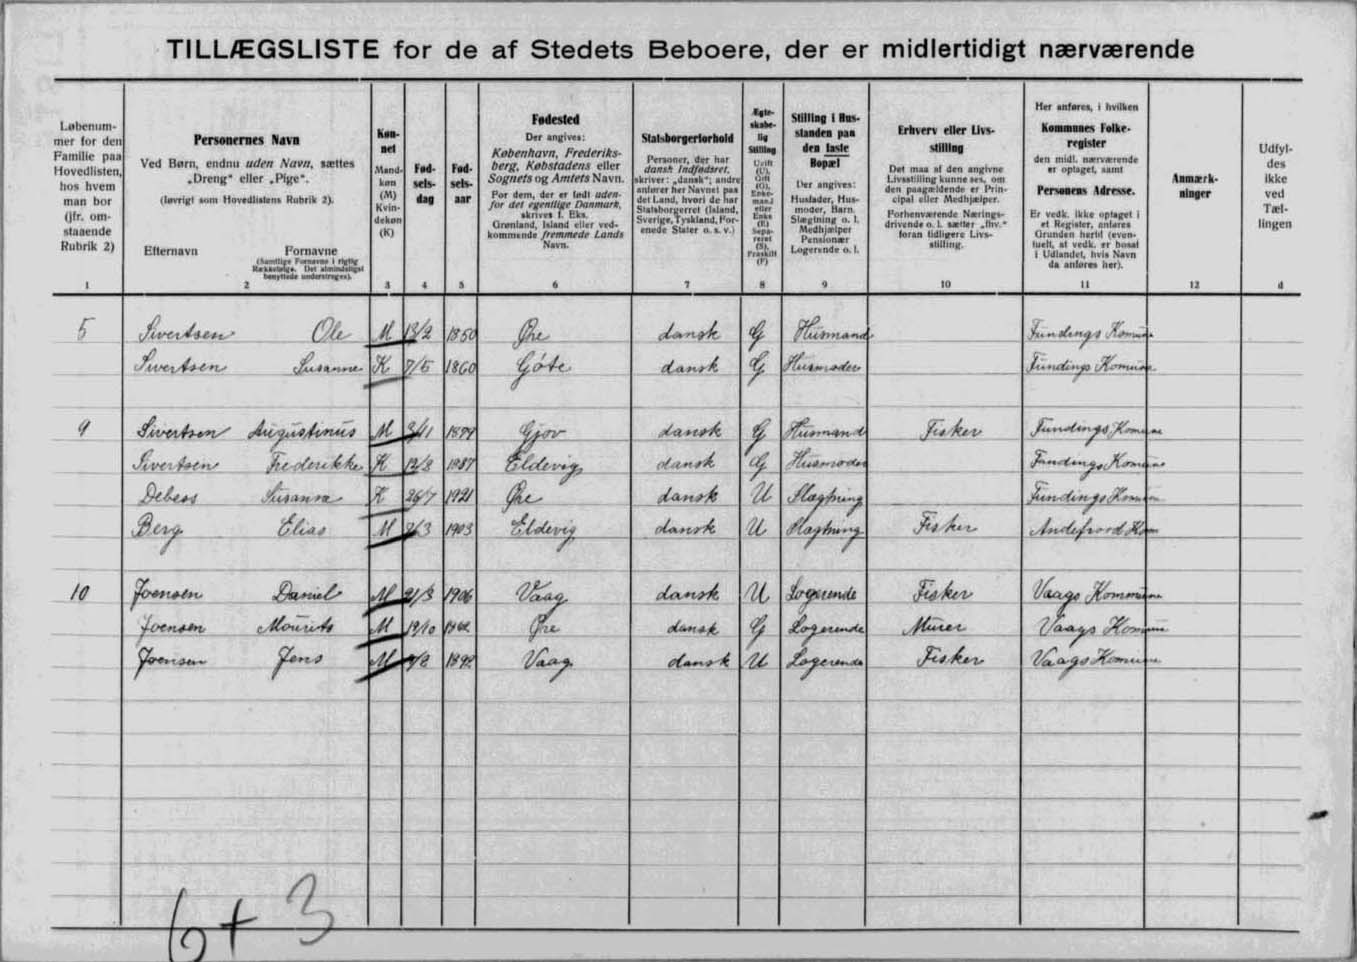 TILLÆGSLISTE for de af Stedets Beboere, der er midlertidigt nærværende
Løbenum-
mer for den
Familie paa
Hovedlisten,
hos hvem
man bor
(jfr. om-
staaende
Rubrik 2)
1
Personernes Navn
Ved Børn, endnu uden Navn, sættes
„Dreng“ eller „Pige“.
(Iøvrigt som Hovedlistens Rubrik 2).
Efternavn Fornavne
(Samtlige Fornavne i rigtig
Rækkefølge. Det almindeligst
benyttede understreges).
2
Køn-
net
Mand-
køn
(M)
Kvin-
dekøn
(K)
3
Fød-
sels-
dag
4
Fød-
sels-
aar
5
Fødested
Der angives:
København, Frederiks-
berg, Købstadens eller
Sognets og Amtets Navn.
For dem, der er født uden-
for det egentlige Danmark,
skrives f. Eks.
Grønland, Island eller ved-
kommende fremmede Lands
Navn.
6
Statsborgerforhold
Personer, der har
dansk Indfødsret,
skriver: „dansk“; andre
anfører her Navnet paa
det Land, hvori de har
Statsborgerret (Island,
Sverige, Tyskland, For-
enede Stater o. s. v.)
7
Ægte-
skabe-
lig
Stilling
Ugift
(U),
Gift
(G),
Enke-
mand
eller
Enke
(E)
Sepa-
reret
(S),
Fraskilt
(F)
8
Stilling i Hus-
standen paa
den faste
Bopæl
Der angives:
Husfader, Hus-
moder, Barn,
Slægtning o. l.
Medhjælper
Pensionær
Logerende o. l.
9
Erhverv eller Livs-
stilling
Det maa af den angivne
Livsstilling kunne ses, om
den paagældende er Prin-
cipal eller Medhjælper.
Forhenværende Nærings-
drivende o. l. sætter „fhv.“
foran tidligere Livs-
stilling.
10
Her anføres, i hvilken
Kommunes Folke-
register
den midl. nærværende
er optaget, samt
Personens Adresse.
Er vedk. ikke optaget i
et Register, anføres
Grunden hertil (even-
tuelt, at vedk. er bosat
i Udlandet, hvis Navn
da anføres her).
11
Anmærk-
ninger
12
Udfyl-
des
ikke
ved
Tæl-
lingen
d
5 Sivertsen Ole M 13/2 1850 Øre dansk G Husmand Fundings Komune
Sivertsen Susanne K 7/5 1860 Göte dansk G Husmoder Fundings Komune
9 Sivertsen Augustinus M Gjov dansk G Husmand Fisker Fundings Komune
Sivertsen Frederikke K 12/8 1887 Eldevig dansk G Husmoder Fundings Komune
Debess Susanna K 26/7 1921 Øre dansk U Slægtning Fundings Komune
Berg Elias M 1903 Eldevig dansk U Slægtning Fisker Andefjord Kom
10 Joensen Daniel M 21/3 1906 Vaag dansk U Logerende Fisker Vaags Kommune
Joensen Mourits M 19/10 Øre dansk G Logerende Murer Vaags Komune
Joensen Jens M 1892 Vaag dansk U Logerende Fisker Vaags Komune
6 + 3